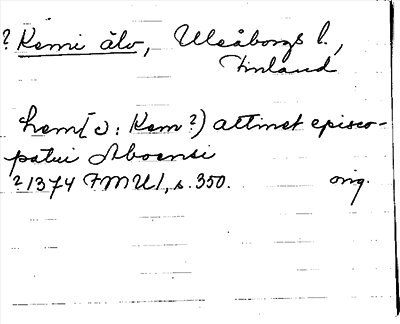 ? Kemi älv, Uleåborgs l.,
Finland
hem[ɔ: Kem?) attinet episco-
patui Aboensi
? 1374 FMU I, s. 350. orig.